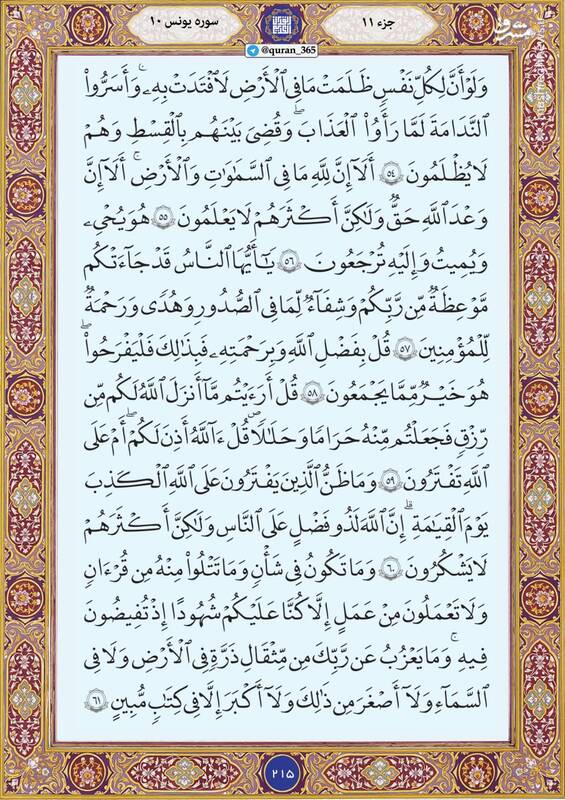 جزء ۱۱
سوره یونس ۱۰
@quran_365
مشرق
وَلَوْ أَنَّ لِكُلِّ نَفْسٍ ظَلَمَتْ مَا فِي الْأَرْضِ لَافْتَدَتْ بِهِۦ ۗ وَأَسَرُّوا۟
النَّدَامَةَ لَمَّا رَأَوُا۟ الْعَذَابَ ۖ وَقُضِيَ بَيْنَهُم بِالْقِسْطِ ۚ وَهُمْ
لَا يُظْلَمُونَ ﴿٥٤﴾ أَلَا إِنَّ لِلَّهِ مَا فِي السَّمَاوَاتِ وَالْأَرْضِ ۗ أَلَا إِنَّ
وَعْدَ اللَّهِ حَقٌّ وَلَٰكِنَّ أَكْثَرَهُمْ لَا يَعْلَمُونَ ﴿٥٥﴾ هُوَ يُحْيِۦ
وَيُمِيتُ وَإِلَيْهِ تُرْجَعُونَ ﴿٥٦﴾ يَا أَيُّهَا النَّاسُ قَدْ جَاءَتْكُم
مَّوْعِظَةٌ مِّن رَّبِّكُمْ وَشِفَاءٌ لِّمَا فِي الصُّدُورِ وَهُدًى وَرَحْمَةٌ
لِّلْمُؤْمِنِينَ ﴿٥٧﴾ قُلْ بِفَضْلِ اللَّهِ وَبِرَحْمَتِهِۦ فَبِذَٰلِكَ فَلْيَفْرَحُوا۟
هُوَ خَيْرٌ مِّمَّا يَجْمَعُونَ ﴿٥٨﴾ قُلْ أَرَءَيْتُم مَّا أَنزَلَ اللَّهُ لَكُم مِّن
رِّزْقٍ فَجَعَلْتُم مِّنْهُ حَرَامًا وَحَلَالًا قُلْ ءَآللَّهُ أَذِنَ لَكُمْ ۖ أَمْ عَلَى
اللَّهِ تَفْتَرُونَ ﴿٥٩﴾ وَمَا ظَنُّ الَّذِينَ يَفْتَرُونَ عَلَى اللَّهِ الْكَذِبَ
يَوْمَ الْقِيَامَةِ ۗ إِنَّ اللَّهَ لَذُو فَضْلٍ عَلَى النَّاسِ وَلَٰكِنَّ أَكْثَرَهُمْ
لَا يَشْكُرُونَ ﴿٦٠﴾ وَمَا تَكُونُ فِي شَأْنٍ وَمَا تَتْلُوا۟ مِنْهُ مِن قُرْءَانٍ
وَلَا تَعْمَلُونَ مِنْ عَمَلٍ إِلَّا كُنَّا عَلَيْكُمْ شُهُودًا إِذْ تُفِيضُونَ
فِيهِ ۚ وَمَا يَعْزُبُ عَن رَّبِّكَ مِن مِّثْقَالِ ذَرَّةٍ فِي الْأَرْضِ وَلَا فِي
السَّمَاءِ وَلَا أَصْغَرَ مِن ذَٰلِكَ وَلَا أَكْبَرَ إِلَّا فِي كِتَابٍ مُّبِينٍ ﴿٦١﴾
۲۱۵